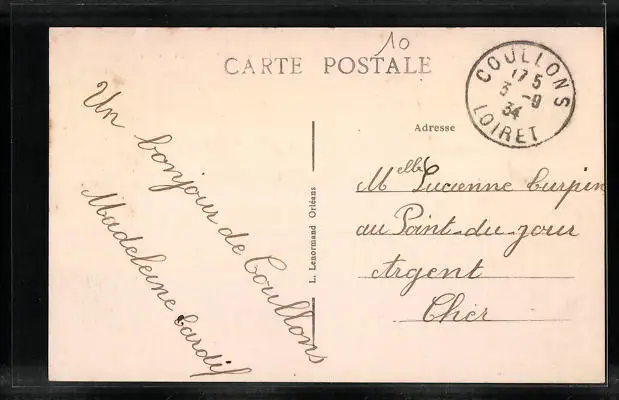 10
CARTE POSTALE
COULLONS
17 5
3 -9
34
LOIRET
Adresse
Un bonjour de Coullons
Madeleine Cardif
L. Lenormand Orléans
Melle Lucienne Curpin
au Point-du-jour
Argent
Cher